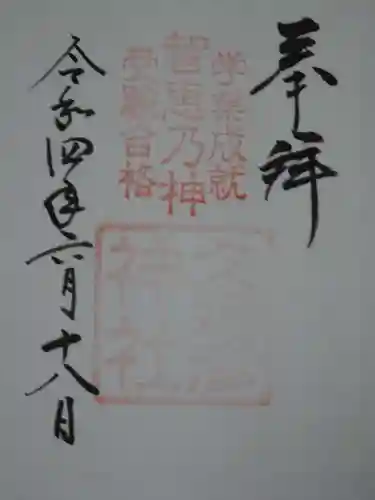 奉拝
学業成就
智恵乃神
受験合格
神社
令和四年六月十八日